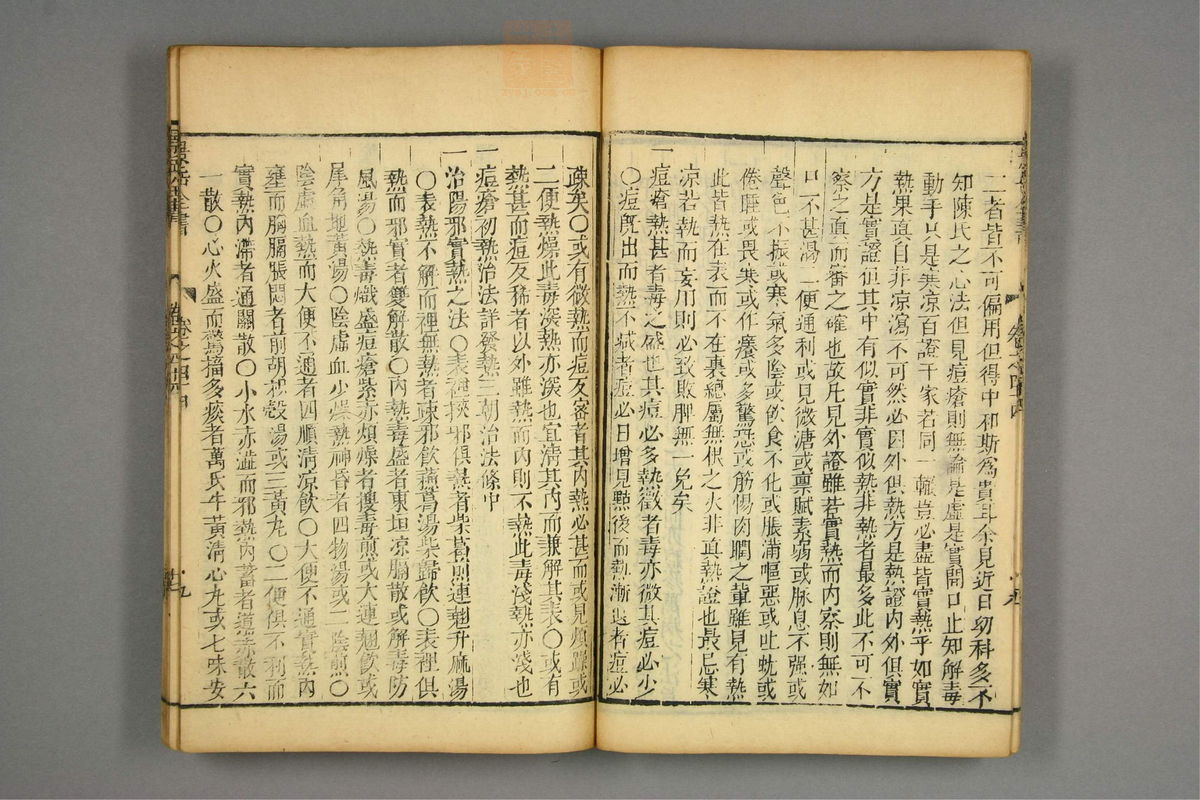 二者皆不可偏用但得中和斯為貴耳余見近日幼科多不
知陳氏之心法但見痘瘡則無論是虛是實開口止知解毒
動手只是寒涼百證千家若同一轍豈必盡皆實熱乎如實
熱果真自非涼瀉不可然必因外俱熱方是熱證內外俱實
方是實證但其中有似實非實似熱非熱者最多此不可不
察之真而審之確也故凡見外證雖若實熱而內察則無如
口不甚渴二便通利或見微溏或稟賦素弱或脉息不强或
聲色不振或寒氣多陰或飲食不化或脹滿嘔惡或吐蚘或
倦睡或畏寒或作癢或多驚恐或筋惕肉瞤之輩雖見有熱
此皆熱在表而不在裏總屬無根之火非真熱證也最忌寒
凉若執而妄用則必致敗脾無一免矣
一痘瘡熱甚者毒之盛也其痘必多熱微者毒亦微其痘必少
○痘既出而熱不減者痘必日增見點後而熱漸退者痘必
疎矣○或有微熱而痘反密者其內熱必甚而或見煩躁或
二便熱燥此毒深熱亦深也宜清其內而兼解其表○或有
熱甚而痘反稀者以外雖熱而內則不熱此毒淺熱亦淺也
一痘瘡初熱治法詳發熱三朝治法條中
一治陽邪實熱之法○表裡挾邪俱熱者柴葛煎連翹升麻湯
○表熱不解而裡無熱者疎邪飲蘓葛湯柴歸飲○表裡俱
熱而邪實者雙解散○內熱毒盛者東垣凉膈散或解毒防
風湯○熱毒熾盛痘瘡紫赤煩燥者搜毒煎或大連翹飲或
犀角地黃湯○陰虛血少柴熱神昏者四物湯或二陰煎○
陰虛血熱而大便不通者四順清凉飲○大便不通實熱內
壅而胸膈脹悶者前胡枳殼湯或三黃丸○二便俱不利而
實熱內滯者通關散○小水赤澁而邪熱內蓄者道赤散六
一散○心火盛而驚搐多痰者萬氏牛黃清心丸或七味安